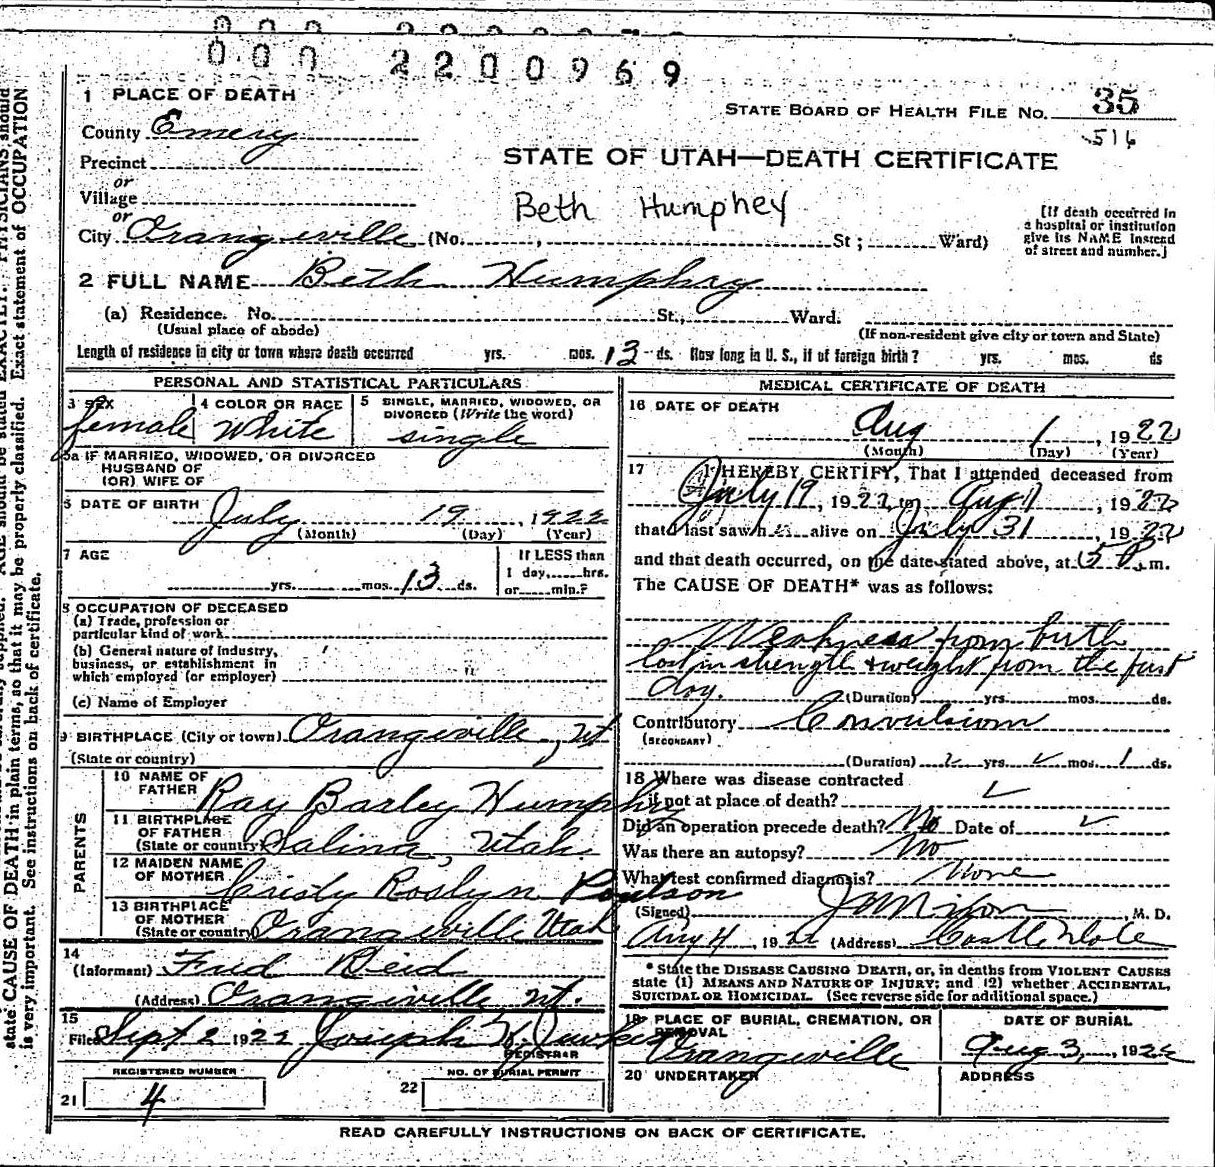 000 2200969
1 PLACE OF DEATH
STATE BOARD OF HEALTH FILE NO. 35
516
County Emery
Precinct
or
Village
or
City Orangeville (No. , St ; Ward)
STATE OF UTAH—DEATH CERTIFICATE
Beth Humphey
[If death occurred in
a hospital or institution
give its NAME instead
of street and number.]
2 FULL NAME Beth Humphry
(a) Residence. No. St., Ward.
(Usual place of abode) (If non-resident give city or town and State)
Length of residence in city or town where death occurred yrs. mos. 13 ds. How long in U. S., if of foreign birth ? yrs. mos. ds
PERSONAL AND STATISTICAL PARTICULARS
3 SEX
female
4 COLOR OR RACE
White
5 SINGLE, MARRIED, WIDOWED, OR
DIVORCED (Write the word)
single
5a IF MARRIED, WIDOWED, OR DIVORCED
HUSBAND OF
(OR) WIFE OF
6 DATE OF BIRTH July 19 , 1922
(Month) (Day) (Year)
7 AGE yrs. mos. 13 ds.
If LESS than
1 day, hrs.
or min.?
8 OCCUPATION OF DECEASED
(a) Trade, profession or
particular kind of work
(b) General nature of industry,
business, or establishment in
which employed (or employer)
(c) Name of Employer
9 BIRTHPLACE (City or town) Orangeville, Ut
(State or country)
PARENTS
10 NAME OF
FATHER Ray Barley Humphry
11 BIRTHPLACE
OF FATHER
(State or country) Salina, Utah
12 MAIDEN NAME
OF MOTHER Cristy Roslyn Poulson
13 BIRTHPLACE
OF MOTHER
(State or country) Orangeville Utah
14
(Informant) Fred Reid
(Address) Orangeville Ut.
15
Filed Sept 2 1922 Joseph H.
REGISTRAR
REGISTERED NUMBER
21 4
NO. OF BURIAL PERMIT
22
MEDICAL CERTIFICATE OF DEATH
16 DATE OF DEATH
Aug 1 , 1922
(Month) (Day) (Year)
17 I HEREBY CERTIFY, That I attended deceased from
July 19, 1922, to Aug 1 , 1922
that I last saw h alive on July 31 , 1922
and that death occurred, on the date stated above, at 5 P. m.
The CAUSE OF DEATH* was as follows:
Weakness from birth
lost in strength & weight from the first
day.
(Duration) yrs. mos. ds.
Contributory Convulsions
(SECONDARY)
(Duration) yrs. mos. 1 ds.
18 Where was disease contracted
if not at place of death?
Did an operation precede death? No Date of
Was there an autopsy? No
What test confirmed diagnosis? None
(Signed) , M. D.
Aug 4 , 1922 (Address) Castle Dale
* State the DISEASE CAUSING DEATH, or, in deaths from VIOLENT CAUSES
state (1) MEANS AND NATURE OF INJURY; and (2) whether ACCIDENTAL,
SUICIDAL OR HOMICIDAL. (See reverse side for additional space.)
19 PLACE OF BURIAL, CREMATION, OR
REMOVAL
Orangeville
DATE OF BURIAL
Aug 3, 1922
20 UNDERTAKER
ADDRESS
READ CAREFULLY INSTRUCTIONS ON BACK OF CERTIFICATE.
state CAUSE OF DEATH in plain terms, so that it may be properly classified. Exact statement of OCCUPATION
is very important. See instructions on back of certificate.